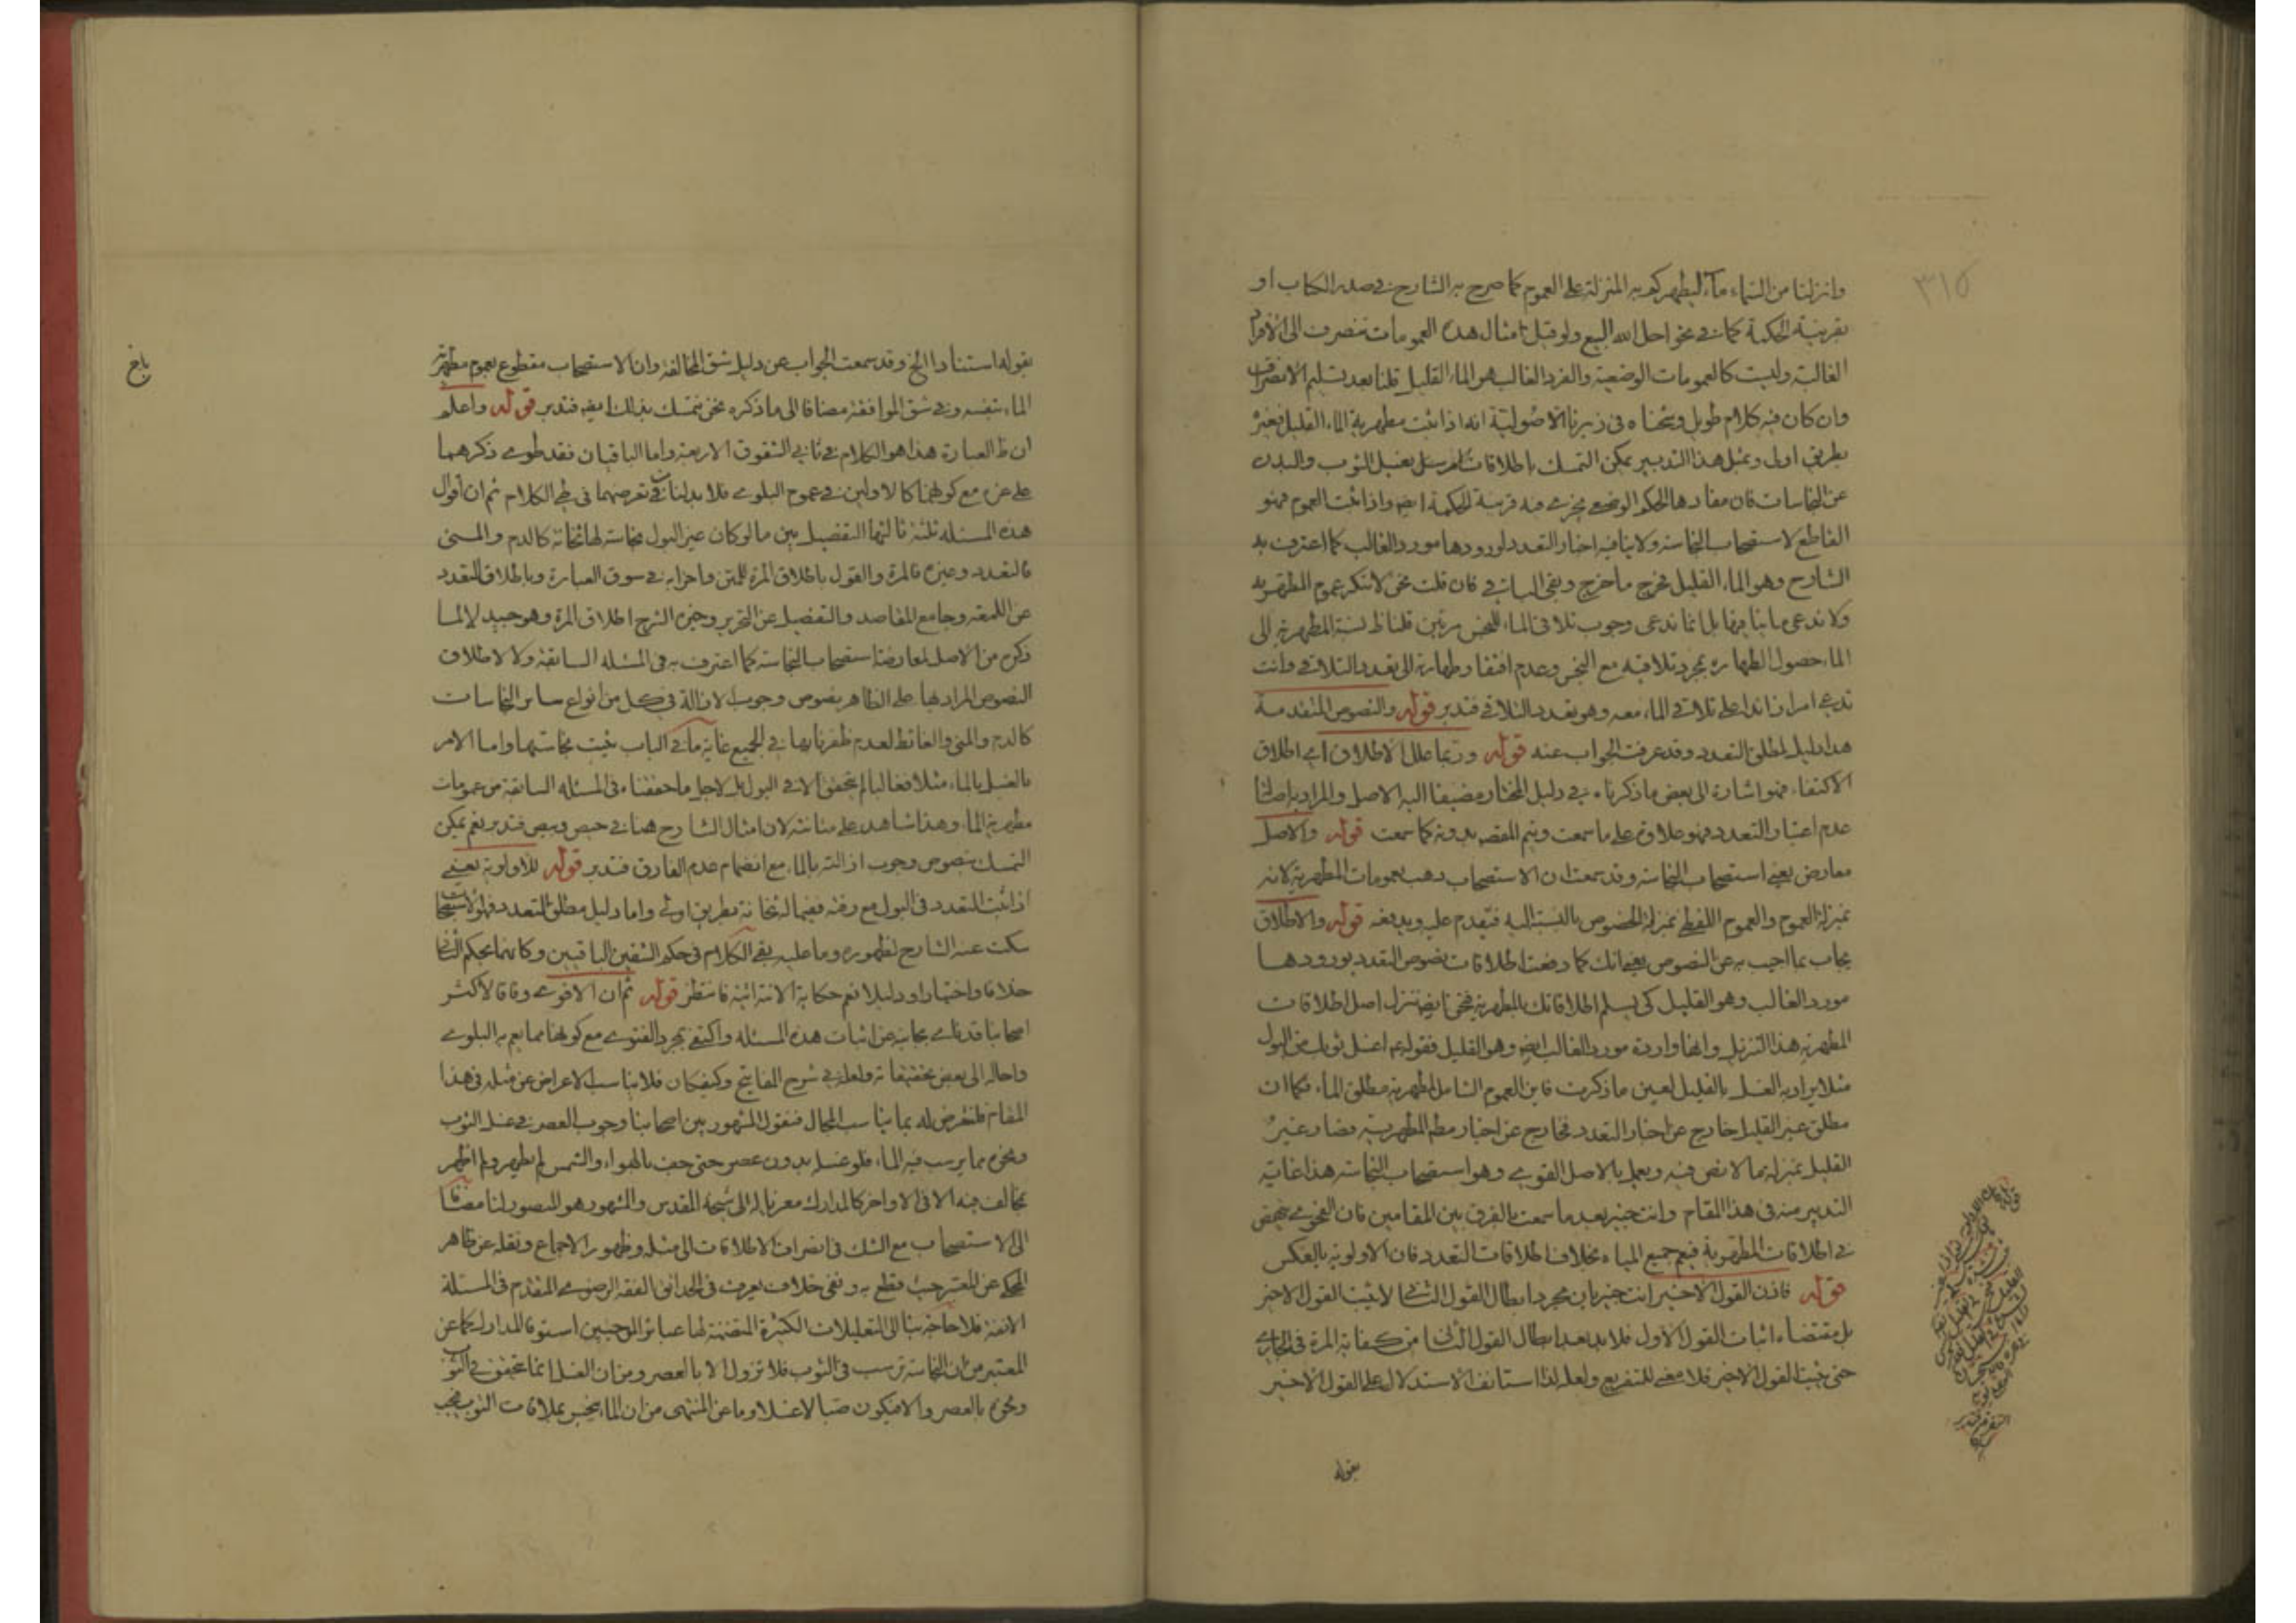 ٣١٥
وانزلنا من السماء ماء ليطهركم به المنزلة على العموم كما صرح به الشارح في صدر الكتاب او
بقرينة الحكمة كما في نحو احل الله البيع ولو قيل امثال هذه العمومات تنصرف الى الافراد
الغالبة وليست كالعمومات الوضعية والفرد الغالب هو الماء القليل قلنا بعد تسليم الانصراف
وان كان فيه كلام طويل وشحناه في زبرنا الاصولية انه اذا ثبت مطهرية الماء القليل فغيره
بطريق اولى وبمثل هذا التدبير يمكن التمسك باطلاقات بغسل الثوب والبدن
عن النجاسات فان مفادها الحكم الوضعي يجري فيه قرينة الحكمة ايضا واذا ثبت العموم فهو
القاطع لاستصحاب النجاسة ولا ينافيه اخبار التعدد لورودها مورد الغالب كما اعترف به
الشارح وهو الماء القليل فخرج ما خرج وبقي الباقي فان قلت نحن لا ننكر عموم المطهرية
ولا ندعي ما ينافيها بل انما ندعي وجوب تلاقي الماء للنجس مرتين قلنا ظ نسبة المطهرية الى
الماء حصول الطهارة بمجرد تلاقيه مع النجس وعدم افتقار طهارته الى تعدد التلاقي وانت
تدعي امرا زائدا على تلاقي الماء معه وهو تعدد التلاقي فتدبر قوله والنصوص المتقدمة
هذا دليل لمطلق التعدد وقد عرفت الجواب عنه قوله وربما علل الاطلاق اي اطلاق
الاكتفاء فهو اشارة الى بعض ما ذكرناه في دليل المختار مضيفا اليه الاصل والمراد به اصالة
عدم اعتبار التعدد فهو علاوة على ما سمعت ويتم المقصد بدونه كما سمعت قوله والاصل
معارض يعني استصحاب النجاسة وقد سمعت ان الاستصحاب ذهب بعمومات المطهرية لانه
بمنزلة العموم والعموم اللفظي بمنزلة الخصوص بالنسبة اليه فيقدم عليه ويدفعه قوله والاطلاق
يجاب بما اجيب به عن النصوص يعني انك كما دفعت اطلاقات نصوص التعدد بورودها
مورد الغالب وهو القليل كي يسلم اطلاقاتك بالمطهرية فنحن ايضا ننزل اصل اطلاقات
المطهرية هذا التنزيل وانها واردة مورد الغالب ايضا وهو القليل فقوله ع اغسل ثوبك من البول
مثلا يراد به الغسل بالقليل لعين ما ذكرت فاين العموم الشامل لمطهرية مطلق الماء فكما ان
مطلق غير القليل خارج عن اخبار التعدد فخارج عن اخبار مطلق المطهرية فصار غير
القليل بمنزلة ما لا نص فيه ويعمل بالاصل القوي وهو استصحاب النجاسة هذا غاية
التدبير منه في هذا المقام وانت خبير بعد ما سمعت بالفرق بين المقامين فان الفحوى
في اطلاقات المطهرية فيعم جميع المياه بخلاف اطلاقات التعدد فان الاولوية بالعكس
قوله فاذن القول الاخير انت خبير بان مجرد ابطال القول الثاني لا يثبت القول الاخير
بل مقتضاه اثبات القول الاول فلا بد بعد ابطال القول الثاني من كفاية المرة في الجاري
حتى يثبت القول الاخير فلا معنى للتفريع ولعله لذا استانف الاستدلال على القول الاخير
بقوله
بقوله استنادا الخ وقد سمعت الجواب عن دليل شق المخالفة وان الاستصحاب مقطوع بعموم مطهرية
الماء بنفسه وفي شق الموافقة مضافا الى ما ذكره نحن نتمسك بذلك ايضا فتدبر قوله واعلم
ان ظ العبارة هذا هو الكلام في ثاني الشقوق الاربعة واما الباقيان فقد طوى ذكرهما
على غره مع كونهما كالاولين في عموم البلوى فلا بد لنا في تعرضهما في طي الكلام ثم ان اقوال
هذه المسئلة ثلثة ثالثها التفصيل بين ما لو كان غير البول نجاسة لها ثخانة كالدم والمنى
فالتعدد وغيره فالمرة والقول باطلاق المرة للمتن واضرابه في سوق العبارة وباطلاق التعدد
عن اللمعة وجامع المقاصد والتفصيل عن التحرير وخيرة الشرح اطلاق المرة وهو جيد لا لما
ذكره من الاصل لمعارضة استصحاب النجاسة كما اعترف به في المسئلة السابقة ولا لاطلاق
النصوص المراد بها على الظاهر نصوص وجوب الازالة في كل من انواع سائر النجاسات
كالدم والمني والغائط لعدم ظفرنا بها في الجميع غاية ما في الباب يثبت نجاستها واما الامر
بالغسل بالماء مثلا فغالبا لم يتحقق الا في البول بل لاجل ما حققناه في المسئلة السابقة من عمومات
مطهرية الماء وهذا شاهد على متانته لان امثال الشارح هنا في حيص وبيص فتدبر نعم يمكن
التمسك بنصوص وجوب ازالته بالماء مع انضمام عدم الفارق فتدبر قوله للاولوية يعني
اذا ثبت التعدد في البول مع رقته ففيما له ثخانة بطريق اولى واما دليل مطلق التعدد فهو الاستصحاب
سكت عنه الشارح لظهوره وما عليه بقي الكلام في حكم الشقين الباقيين وكانهما بحكم الثاني
خلافا واختيارا ودليلا نعم حكاية الاتية فانتظر قوله ثم ان الاقوى وفاقا لاكثر
اصحابنا قدتاى بجانبه عن اثبات هذه المسئلة واكتفى بمجرد الفتوى مع كونها مما يعم به البلوى
واحاله الى بعض تحقيقاته ولعله في شرح المفاتيح وكيفكان فلا يناسب الاعراض عن مثله في هذا
المقام فلنتعرض له بما يناسب المجال فنقول المشهور بين اصحابنا وجوب العصر في غسل الثوب
ونحوه مما يرسب فيه الماء فلو غسل بدون عصر حتى جف بالهواء والشمس لم يطهر ولم اظهر
مخالف فيه الا في الاواخر كالمدارك معزيا له الى شيخه المقدس والمشهور هو المنصور لنا مضافا
الى الاستصحاب مع الشك في انصراف الاطلاقات الى مثله وظهور الاجماع ونقله عن ظاهر
المحكي عن المعتبر حيث قطع به ونفي خلاف يعرف في الحدائق الفقه الرضوي المتقدم في المسئلة
الانفة فلا حاجة بنا الى التعليلات الكثيرة المتضمنة لها عبائر الموجبين استوفا المدارك كما عن
المعتبر من ان النجاسة ترسب في الثوب فلا تزول الا بالعصر ومن ان الغسل انما يتحقق في الثوب
ونحوه بالعصر والا فيكون صبا لا غسلا وما عن المنتهى من ان الماء ينجس بملاقات الثوب فيجب